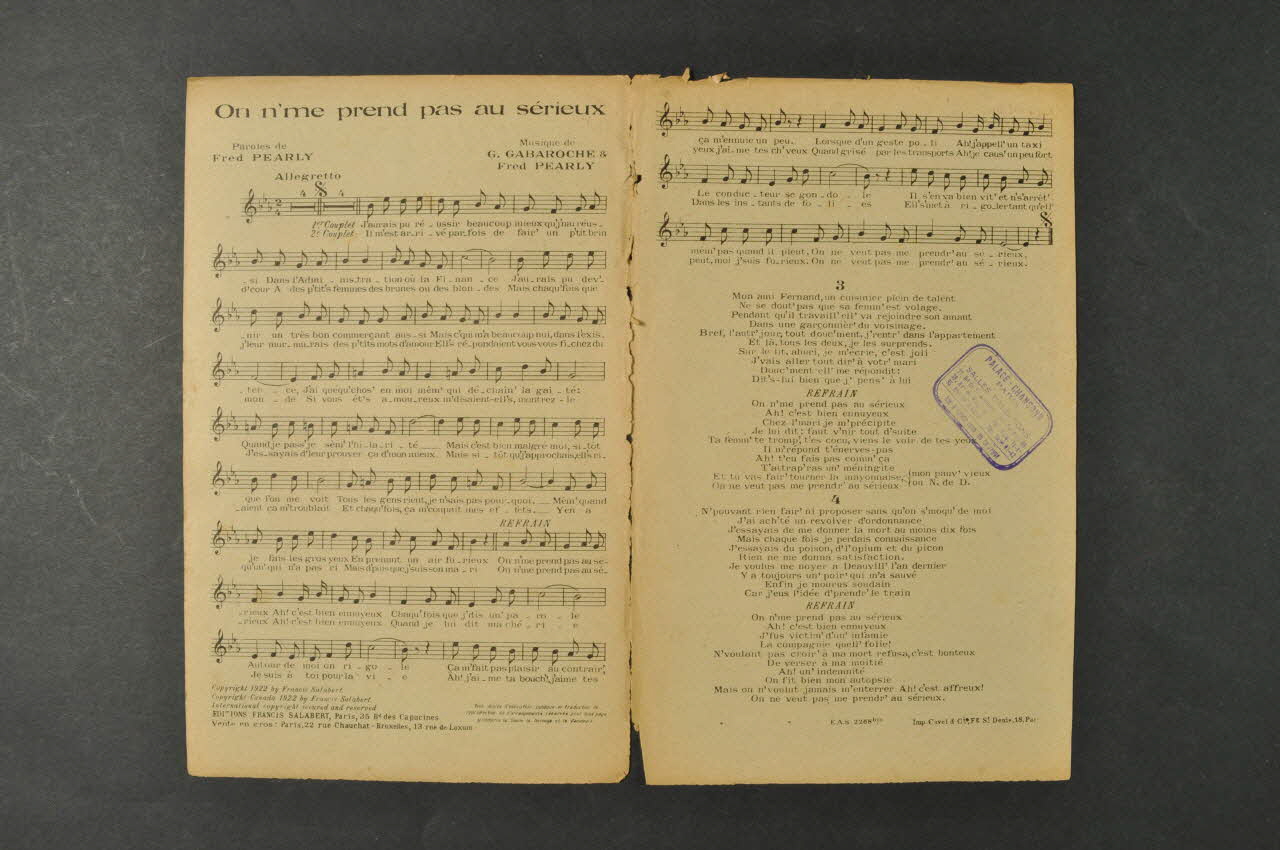 On n'me prend pas au sérieux
Paroles de
Fred PEARLY
Musique de
G. GABAROCHE &
Fred PEARLY
Allegretto
4 4
1er Couplet J'aurais pu ré_ussir beaucoup mieux qu'j'nai réus_
2e Couplet Il m'est ar_ri_vé par_fois de fair' un p'tit brin
_si Dans l'Admi_nis_tra_tion où la Fi_nan_ce J'au_rais pu dev'_
d'cour A des p'tit's femmes des brunes ou des blon_des Mais chaqu'fois que
_nir un très bon commerçant aus_si Mais c'qui m'a beaucoup nui, dans l'exis_
j'leur mur_mu_rais des p'tits mots d'amour Ell's ré_pondaient vous vous fi_chez du
_ten_ce, J'ai quéqu'chos' en moi mêm' qui dé_chaîn' la gaî_té:
mon_de Si vous êt's a_mou_reux m'disaient-ell's, montrez_le
Quand je pass' je sèm' l'hi_la_ri_té Mais c'est bien malgré moi, si_tôt
J'es_sayais d'leur prouver ça d'mon mieux. Mais si_tôt qu'j'approchais, ell's ri_
que l'on me voit Tous les gens rient, je n'sais pas pour_quoi, Mêm' quand
_aient ça m'troublait Et chaqu'fois, ça m'coupait mes ef_fets Y'en a
REFRAIN
je fais les gros yeux En prenant un air fu_rieux On n'me prend pas au sé_
qu'un' qui n'a pas ri Mais d'puis que j'suis son ma_ri On n'me prend pas au sé_
_rieux Ah! c'est bien ennuyeux Chaqu'fois que j'dis un' pa_ro_le
_rieux Ah! c'est bien ennuyeux Quand je lui dit ma ché_ri_e
Autour de moi on ri_go_le Ça m'fait pas plaisir au contrair',
Je suis à toi pour la vi_e Ah! j'ai_me ta bouch', j'aime tes
Copyright 1922 by Francis Salabert
Copyright Canada 1922 by Francis Salabert
International copyright secured and reserved
EDITIONS FRANCIS SALABERT, Paris, 35 Bd des Capucines
Vente en gros: Paris, 22 rue Chauchat - Bruxelles, 13 rue de Loxum
Tous droits d'exécution publique de traduction de
reproduction et d'arrangements réservés pour tous pays
y compris la Suède la Norvège et le Danemark
ça m'ennuie un peu. Lorsque d'un geste po_li Ah! j'appell' un taxi
yeux j'ai_me tes ch'veux Quand grisé par les transports Ah! je caus' un peu fort
Le conduc_teur se gon_do_le Il s'en va bien vit' et n's'arrêt'
Dans les ins_tants de fo_li_es Ell' s'met à ri_go_ler tant qu'ell'
mêm' pas quand il pleut, On ne veut pas me prendr' au sé_rieux.
peut, moi j'suis fu_rieux. On ne veut pas me prendr' au sé_rieux.
3
Mon ami Fernand, un cuisinier plein de talent
Ne se dout' pas que sa femm' est volage.
Pendant qu'il travaill' ell' va rejoindre son amant
Dans une garçonnièr' du voisinage.
Bref, l'autr' jour, tout douc'ment, j'rentr' dans l'appartement
Et là, tous les deux, je les surprends.
Sur le lit, ahuri, je m'écrie, c'est joli
J'vais aller tout dir' à votr' mari
Douc'ment ell' me répondit:
Dit's-lui bien que j' pens' à lui
REFRAIN
On n'me prend pas au sérieux
Ah! c'est bien ennuyeux
Chez l'mari je m'précipite
Je lui dit: faut v'nir tout d'suite
Ta femm' te tromp', t'es cocu, viens le voir de tes yeux
Il m'répond t'énerves-pas
Ah! t'en fais pas comm' ça
T'attrap'ras un' méningite
Et tu vas fair' tourner la mayonnaise, (mon pauv' vieux
On ne veut pas me prendr' au sérieux (ou N. de D.
4
N'pouvant rien fair' ni proposer sans qu'on s'moqu' de moi
J'ai ach'té un revolver d'ordonnance
J'essayais de me donner la mort au moins dix fois
Mais chaque fois je perdais connaissance
J'essayais du poison, d'l'opium et du picon
Rien ne me donna satisfaction.
Je voulus me noyer à Deauvill' l'an dernier
Y a toujours un' poir' qui m'a sauvé
Enfin je mourus soudain
Car j'eus l'idée d'prendr' le train
REFRAIN
On n'me prend pas au sérieux
Ah! c'est bien ennuyeux
J'fus victim' d'un' infamie
La compagnie quell' folie!
N'voulant pas croir' à ma mort refusa, c'est honteux
De verser à ma moitié
Ah! un' indemnité
On fit bien mon autopsie
Mais on n'voulut jamais m'enterrer Ah! c'est affreux!
On ne veut pas me prendr' au sérieux.
E.A.S 2268bis
Imp. Cavel & Cie, Fg St Denis, 18, Par
PALACE CHANSONS